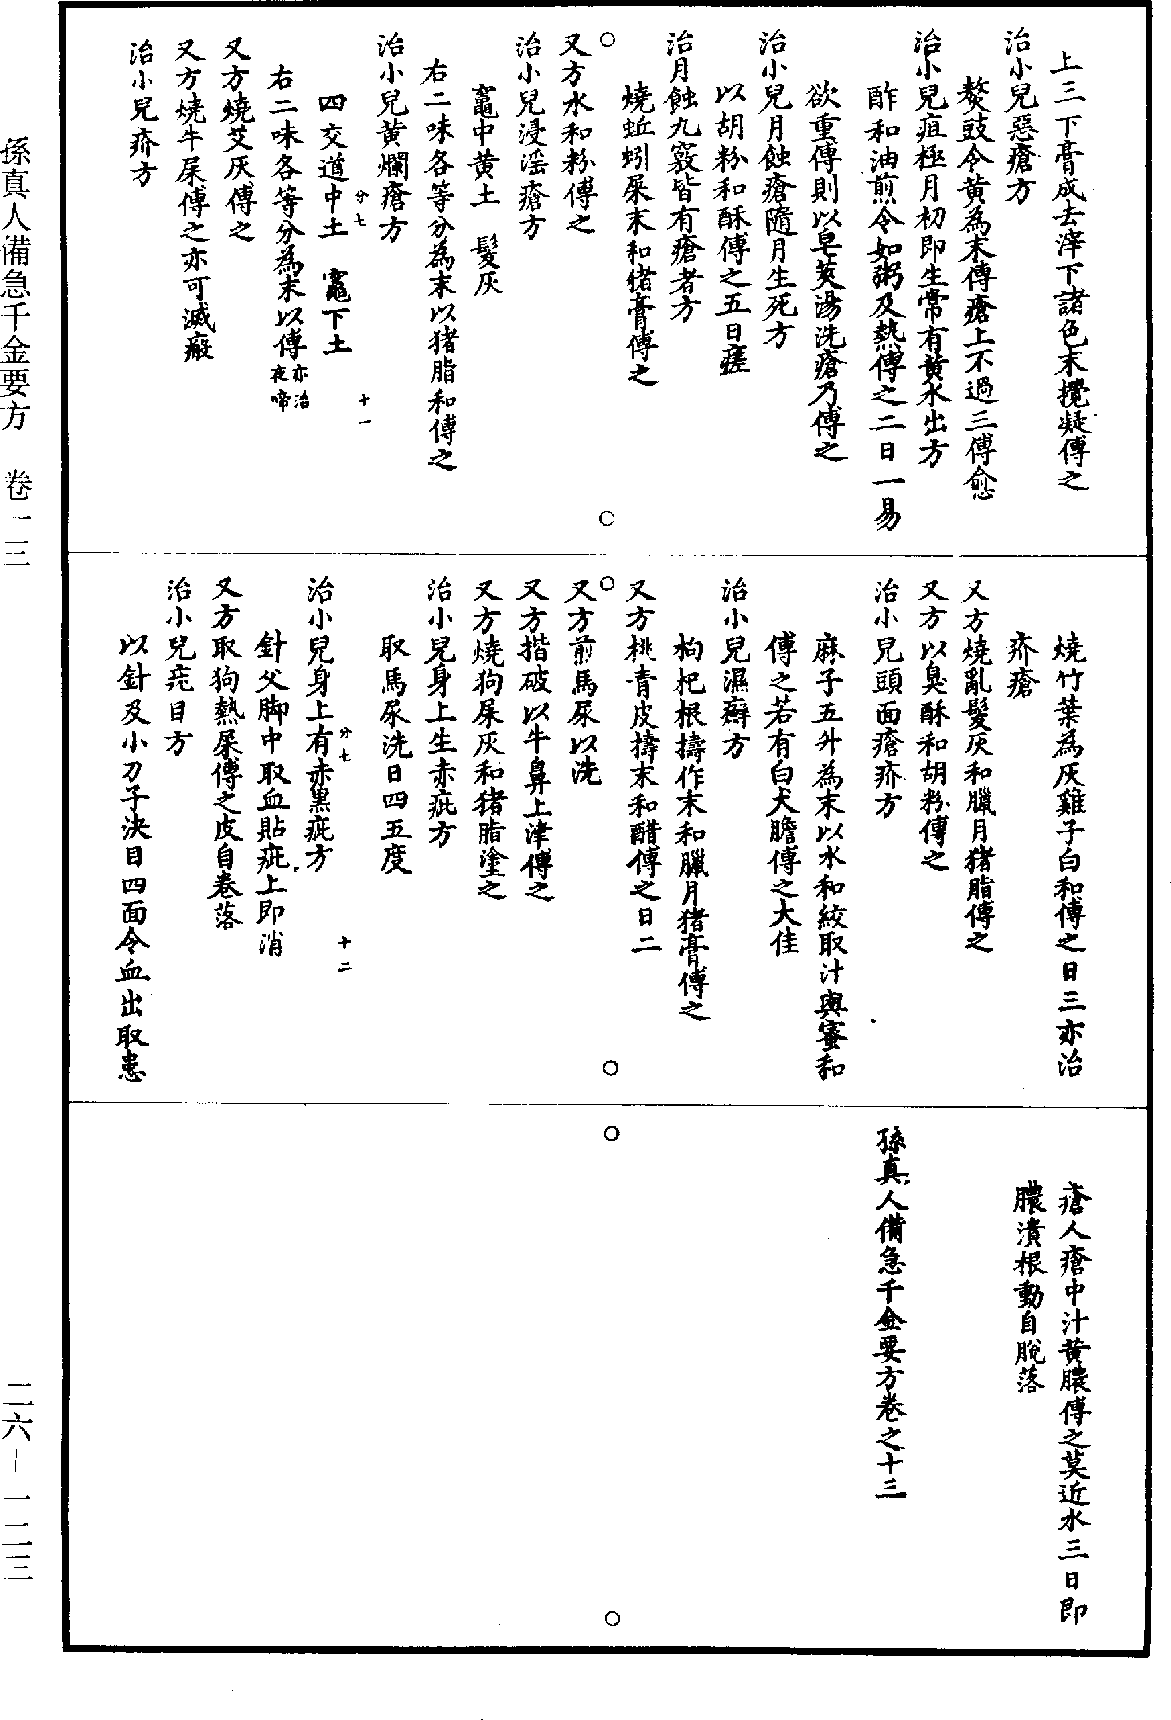 上三下膏成去滓下諸色末攪凝傅之
治小兒惡瘡方
熬豉令黃為末傅瘡上不過三傅愈
治小兒疽極月初即生常有黃水出方
酢和油煎令如粥及熱傅之二日一易
欲重傅則以皂莢湯洗瘡乃傅之
治小兒月蝕瘡隨月生死方
以胡粉和酥傅之五日瘥
治月蝕九竅皆有瘡者方
燒蚯蚓屎末和猪膏傅之
又方水和粉傅之
治小兒浸淫瘡方
竈中黃土 髮灰
右二味各等分為末以猪脂和傅之
治小兒黃爛瘡方
分七 十一
四交道中土 竈下土
右二味各等分為末以傅亦治夜啼
又方燒艾灰傅之
又方燒牛屎傅之亦可滅瘢
治小兒疥方
燒竹葉為灰雞子白和傅之日三亦治
疥瘡
又方燒亂髮灰和臘月猪脂傅之
又方以臭酥和胡粉傅之
治小兒頭面瘡疥方
麻子五升為末以水和絞取汁與蜜和
傅之若有白犬膽傅之大佳
治小兒濕癬方
枸杞根擣作末和臘月猪膏傅之
又方桃青皮擣末和醋傅之日二
又方煎馬尿以洗
又方揩破以牛鼻上津傅之
又方燒狗屎灰和猪脂塗之
治小兒身上生赤疵方
取馬尿洗日四五度
分七 十二
治小兒身上有赤黑疵方
針父脚中取血貼疵上即消
又方取狗熱屎傅之皮自卷落
治小兒疣目方
以針及小刀子決目四面令血出取患
瘡人瘡中汁黃膿傅之莫近水三日即
膿潰根動自脫落
孫真人備急千金要方卷之十三
孫真人備急千金要方 卷一三
二六－一二三